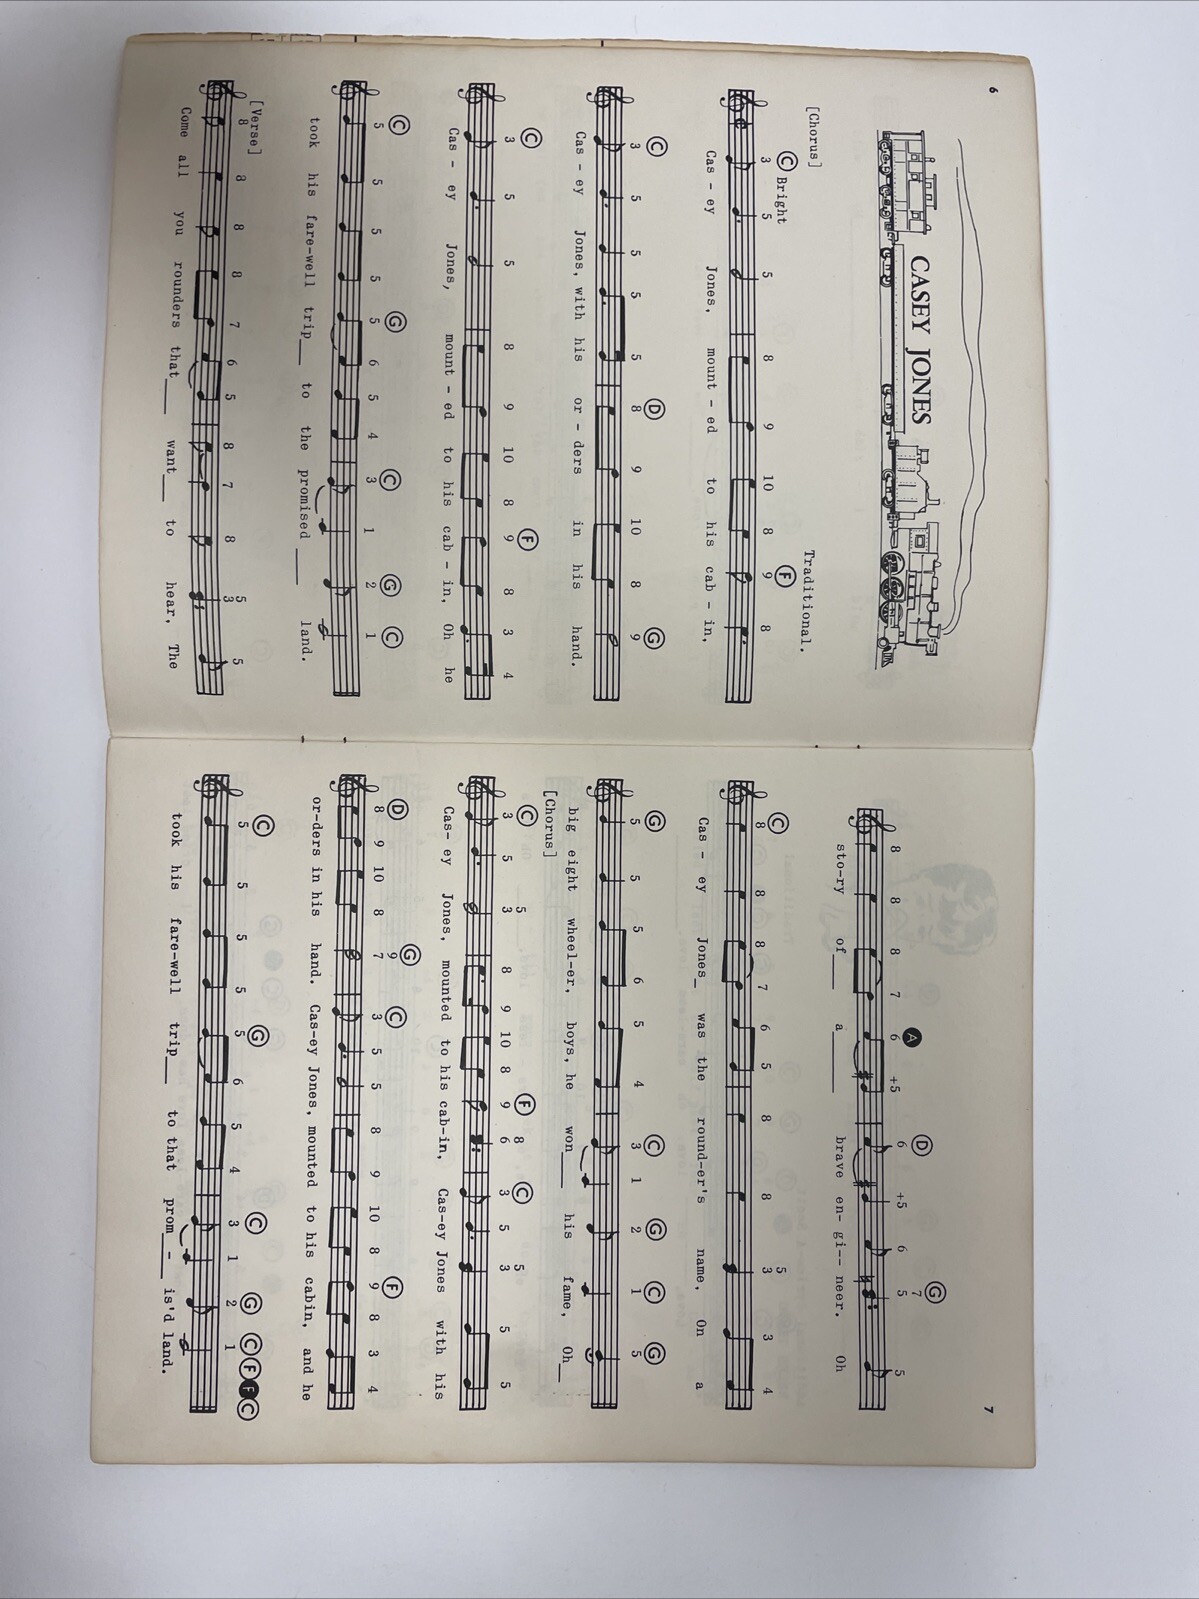 6
CASEY JONES
[Chorus]
Traditional.
C Bright F
3 5 5 8 9 10 8 9 8
Cas - ey Jones, mount - ed to his cab - in,
C D G
3 5 5 5 5 8 9 10 8 9
Cas - ey Jones, with his or - ders in his hand.
C F
3 5 5 8 9 10 8 9 8 3 4
Cas - ey Jones, mount - ed to his cab - in, Oh he
C G C G C
5 5 5 5 5 6 5 4 3 1 2 1
took his fare-well trip__ to the promised ___ land.
[Verse]
8 8 8 8 7 6 5 8 7 8 5 3 5
Come all you rounders that___ want__ to hear, The
7
A D G
8 8 8 7 6 +5 6 +5 6 7 5 5
sto-ry of___ a_____ brave en- gi-- neer. Oh
C
8 8 8 7 6 5 8 8 5 3 3 4
Cas - ey Jones_ was the round-er's name, On a
G C G C G
5 5 5 6 5 4 3 1 2 1 5
big eight wheel-er, boys, he won___ his fame, Oh__
[Chorus]
C F C
3 5 5 3 8 9 10 8 9 8 6 3 5 5 3 5 5
Cas- ey Jones, mounted to his cab-in, Cas-ey Jones with his
D G C F
8 9 10 8 9 7 3 5 5 8 9 10 8 9 8 3 4
or-ders in his hand. Cas-ey Jones, mounted to his cabin, and he
C G C G C F F C
5 5 5 5 5 6 5 4 3 1 2 1
took his fare-well trip__ to that prom_-_ is'd land.